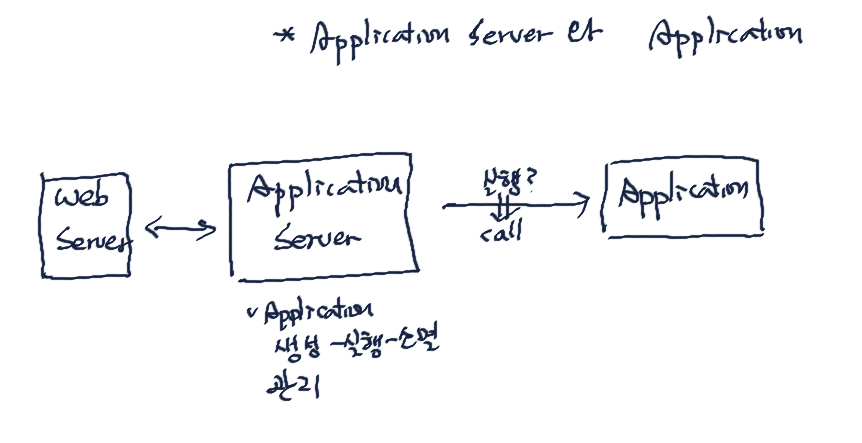 * Application Server 와 Application
Web
Server
Application
Server
실행?
call
Application
v Application
생성-실행-소멸
관리